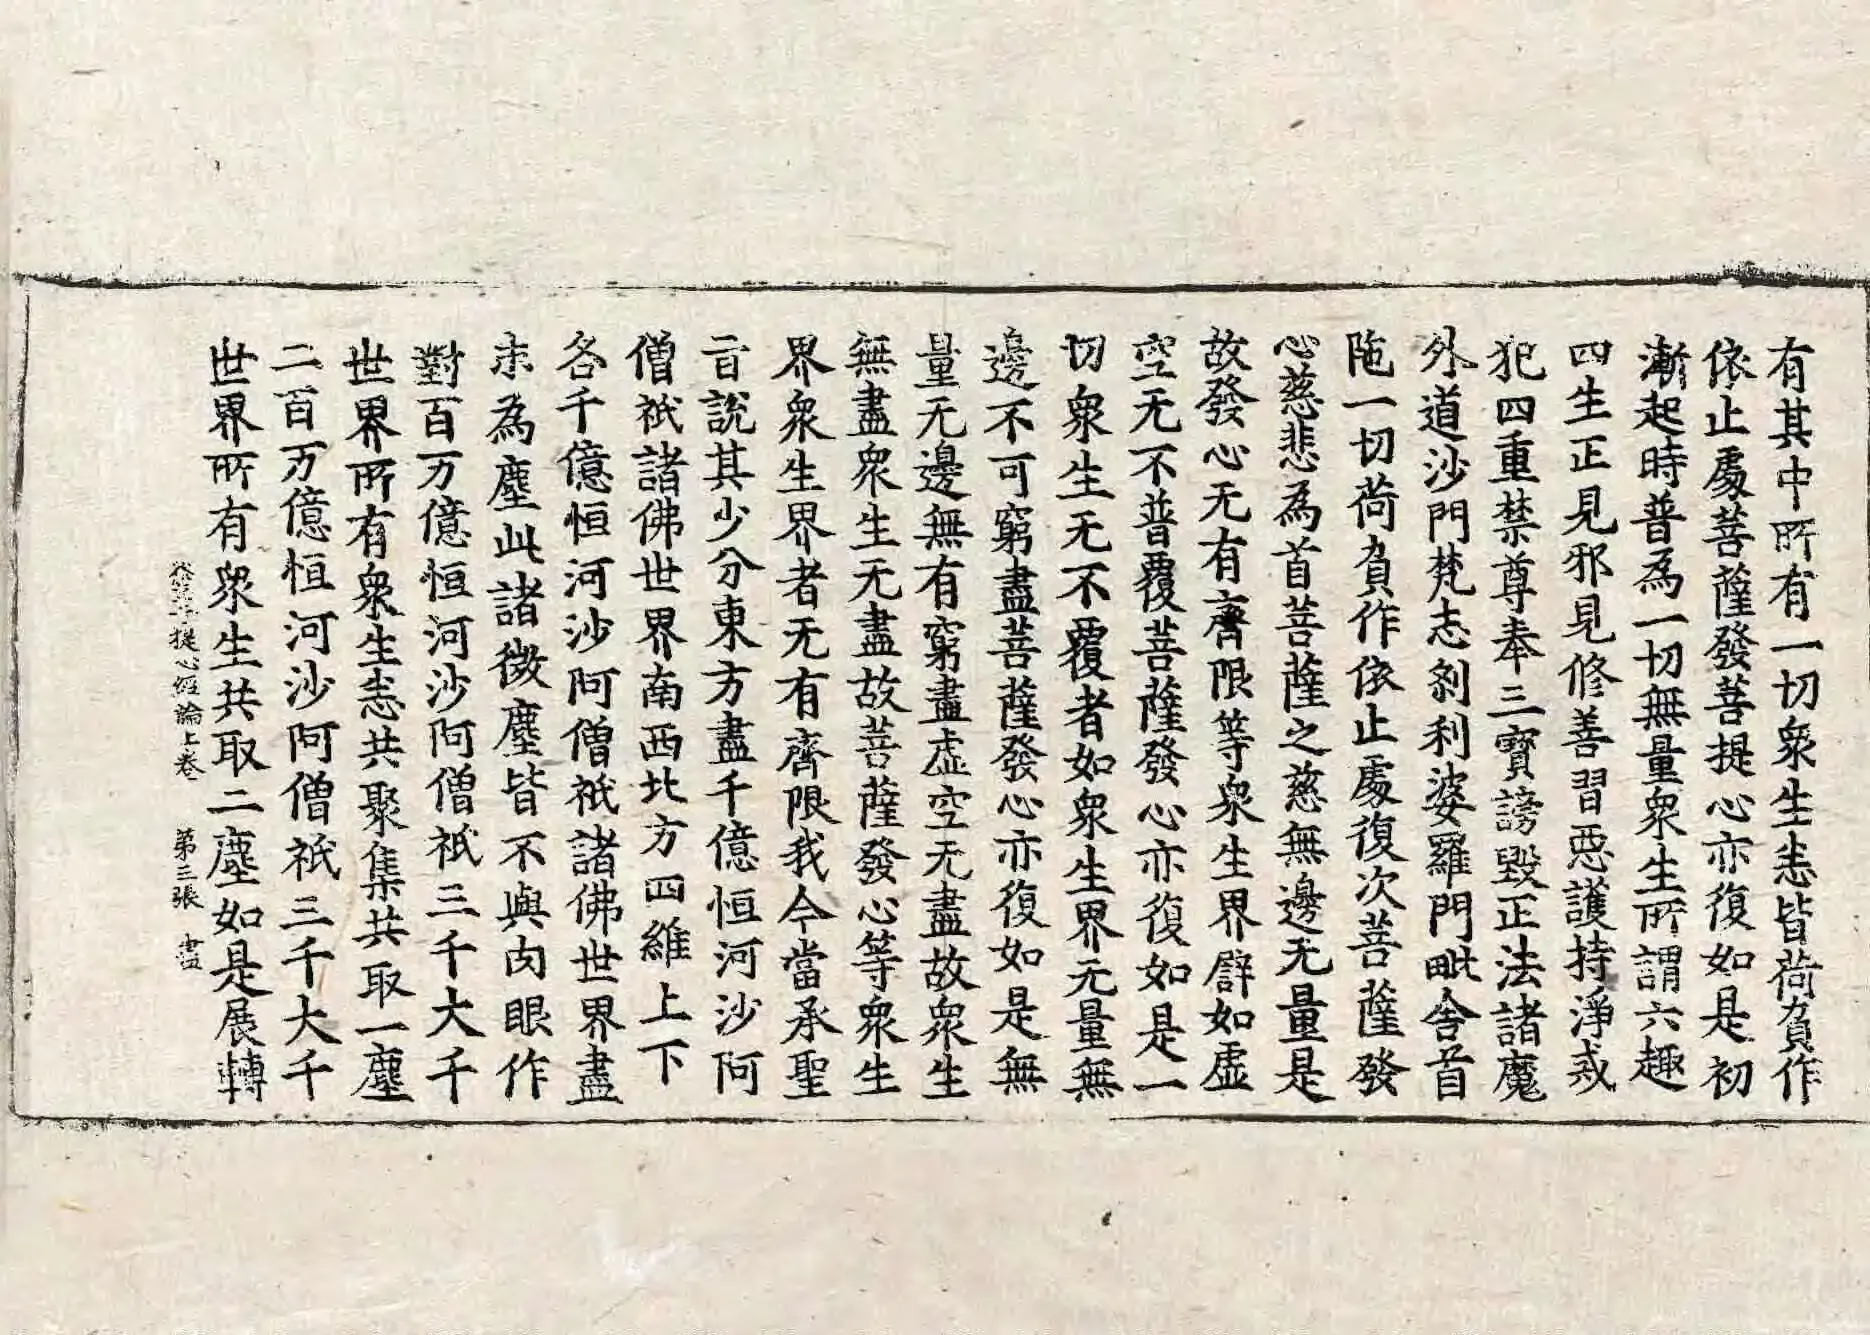 有其中所有一切衆生恚皆荷負作
依止處菩薩發菩提心亦復如是初
漸起時普為一切無量衆生所謂六趣
四生正見邪見修善習惡護持淨戒
犯四重禁尊奉三寳謗毀正法諸魔
外道沙門梵志刹利婆羅門毗舍首
陁一切荷負作依止處復次菩薩發
心慈悲為首菩薩之慈無邊无量是
故發心无有齊限等衆生界譬如虛
空无不普覆菩薩發心亦復如是一
切衆生无不覆者如衆生界无量無
邊不可窮盡菩薩發心亦復如是無
量无邊無有窮盡虛空无盡故衆生
無盡衆生无盡故菩薩發心等衆生
界衆生界者无有齊限我今當承聖
旨說其少分東方盡千億恒河沙阿
僧祇諸佛世界南西北方四維上下
各千億恒河沙阿僧祇諸佛世界盡
末為塵此諸微塵皆不與肉眼作
對百万億恒河沙阿僧祇三千大千
世界所有衆生恚共聚集共取一塵
二百万億恒河沙阿僧祇三千大千
世界所有衆生共取二塵如是展轉
發菩提心經論上卷 第三張 盡